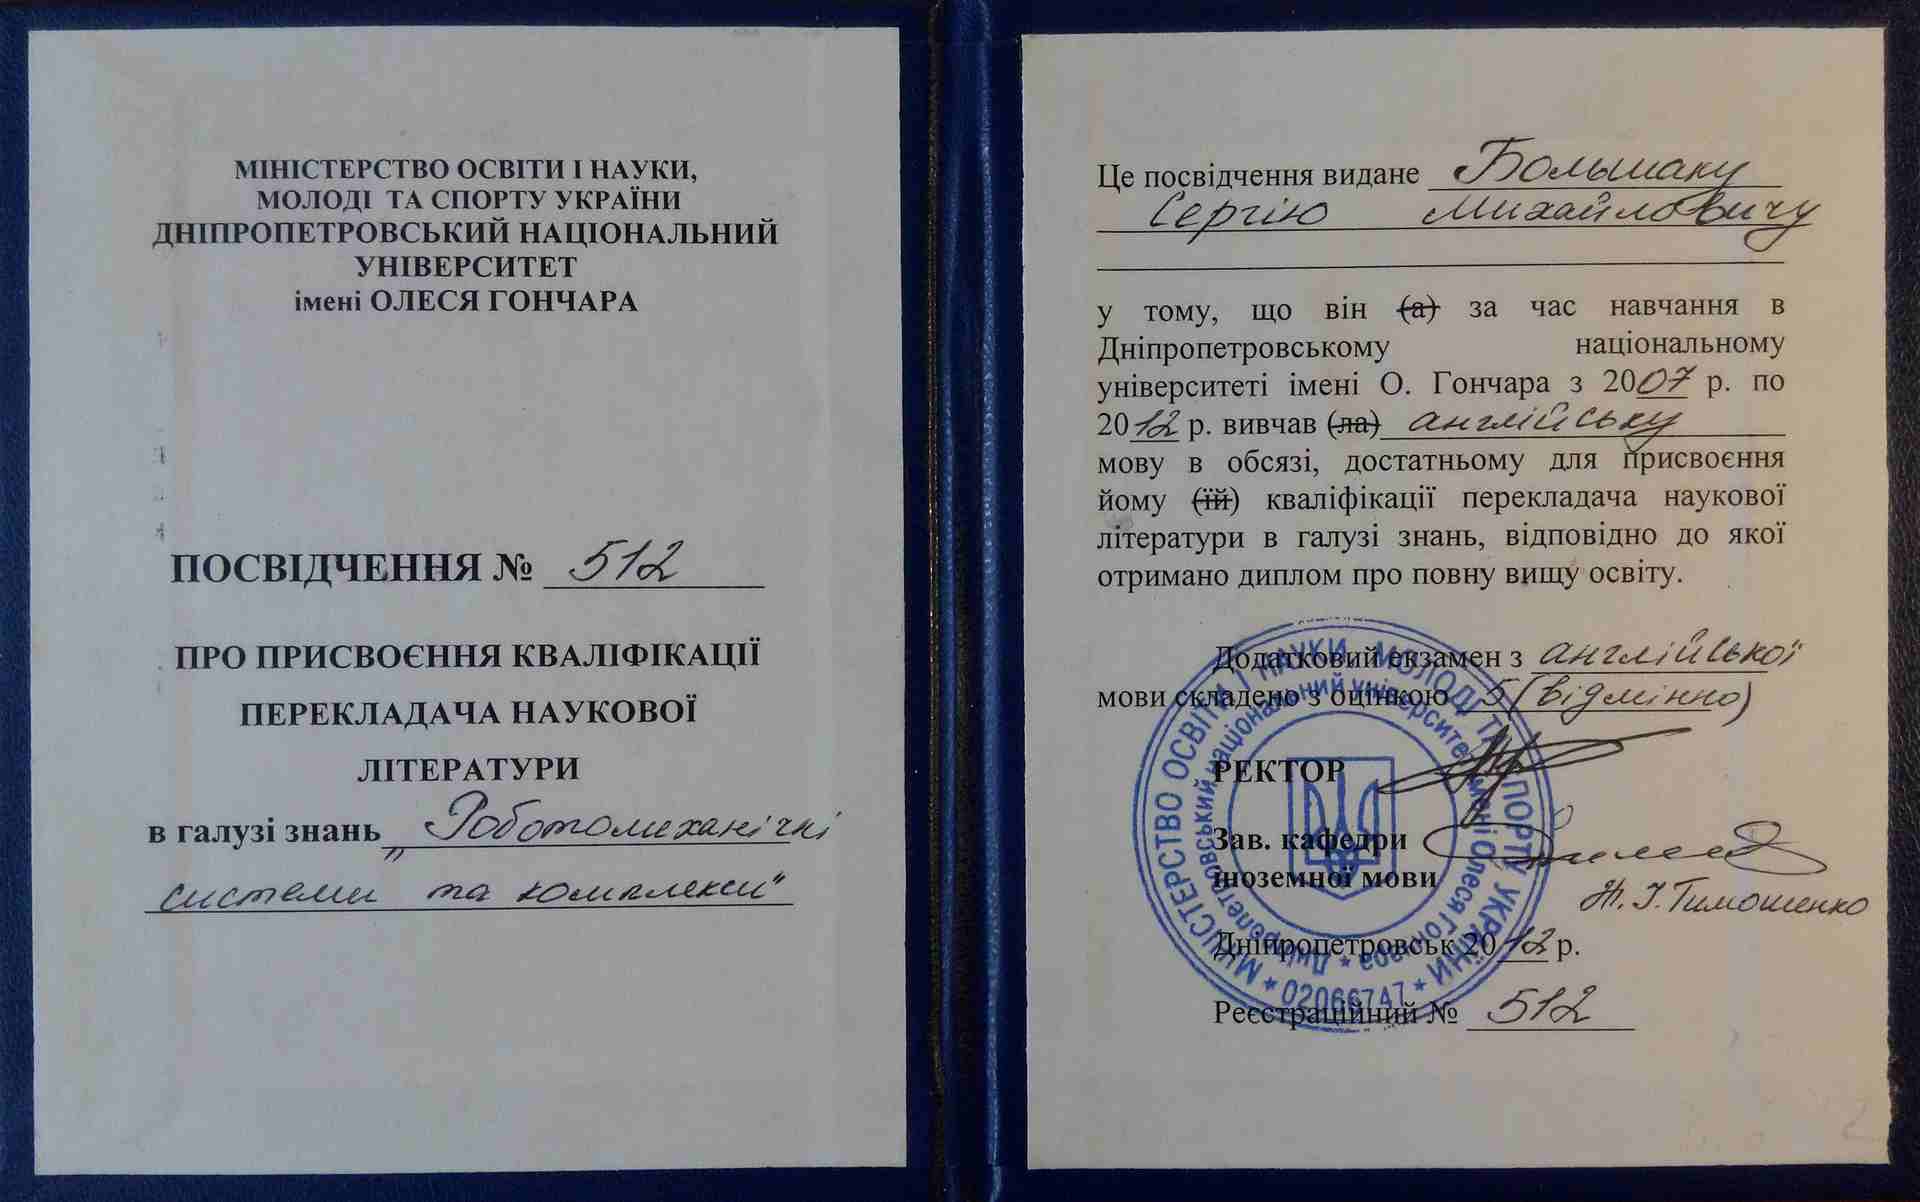 МІНІСТЕРСТВО ОСВІТИ І НАУКИ,
МОЛОДІ ТА СПОРТУ УКРАЇНИ
ДНІПРОПЕТРОВСЬКИЙ НАЦІОНАЛЬНИЙ
УНІВЕРСИТЕТ
імені ОЛЕСЯ ГОНЧАРА
ПОСВІДЧЕННЯ № 512
ПРО ПРИСВОЄННЯ КВАЛІФІКАЦІЇ
ПЕРЕКЛАДАЧА НАУКОВОЇ
ЛІТЕРАТУРИ
в галузі знань „Робототомиханічні
системи та комплекси"
Це посвідчення видане Большаку
Сергію Михайловичу
у тому, що він (а) за час навчання в
Дніпропетровському національному
університеті імені О. Гончара з 2007 р. по
2012 р. вивчав (ла) англійську
мову в обсязі, достатньому для присвоєння
йому (їй) кваліфікації перекладача наукової
літератури в галузі знань, відповідно до якої
отримано диплом про повну вищу освіту.
Додатковий екзамен з англійської
мови складено з оцінкою 5 (відмінно)
РЕКТОР
Зав. кафедри
іноземної мови
Н. І. Тимошенко
Дніпропетровськ 2012 р.
Реєстраційний № 512
МІНІСТЕРСТВО ОСВІТИ І НАУКИ, МОЛОДІ ТА СПОРТУ УКРАЇНИ * 02066747 *
Дніпропетровський національний університет імені Олеся Гончара *